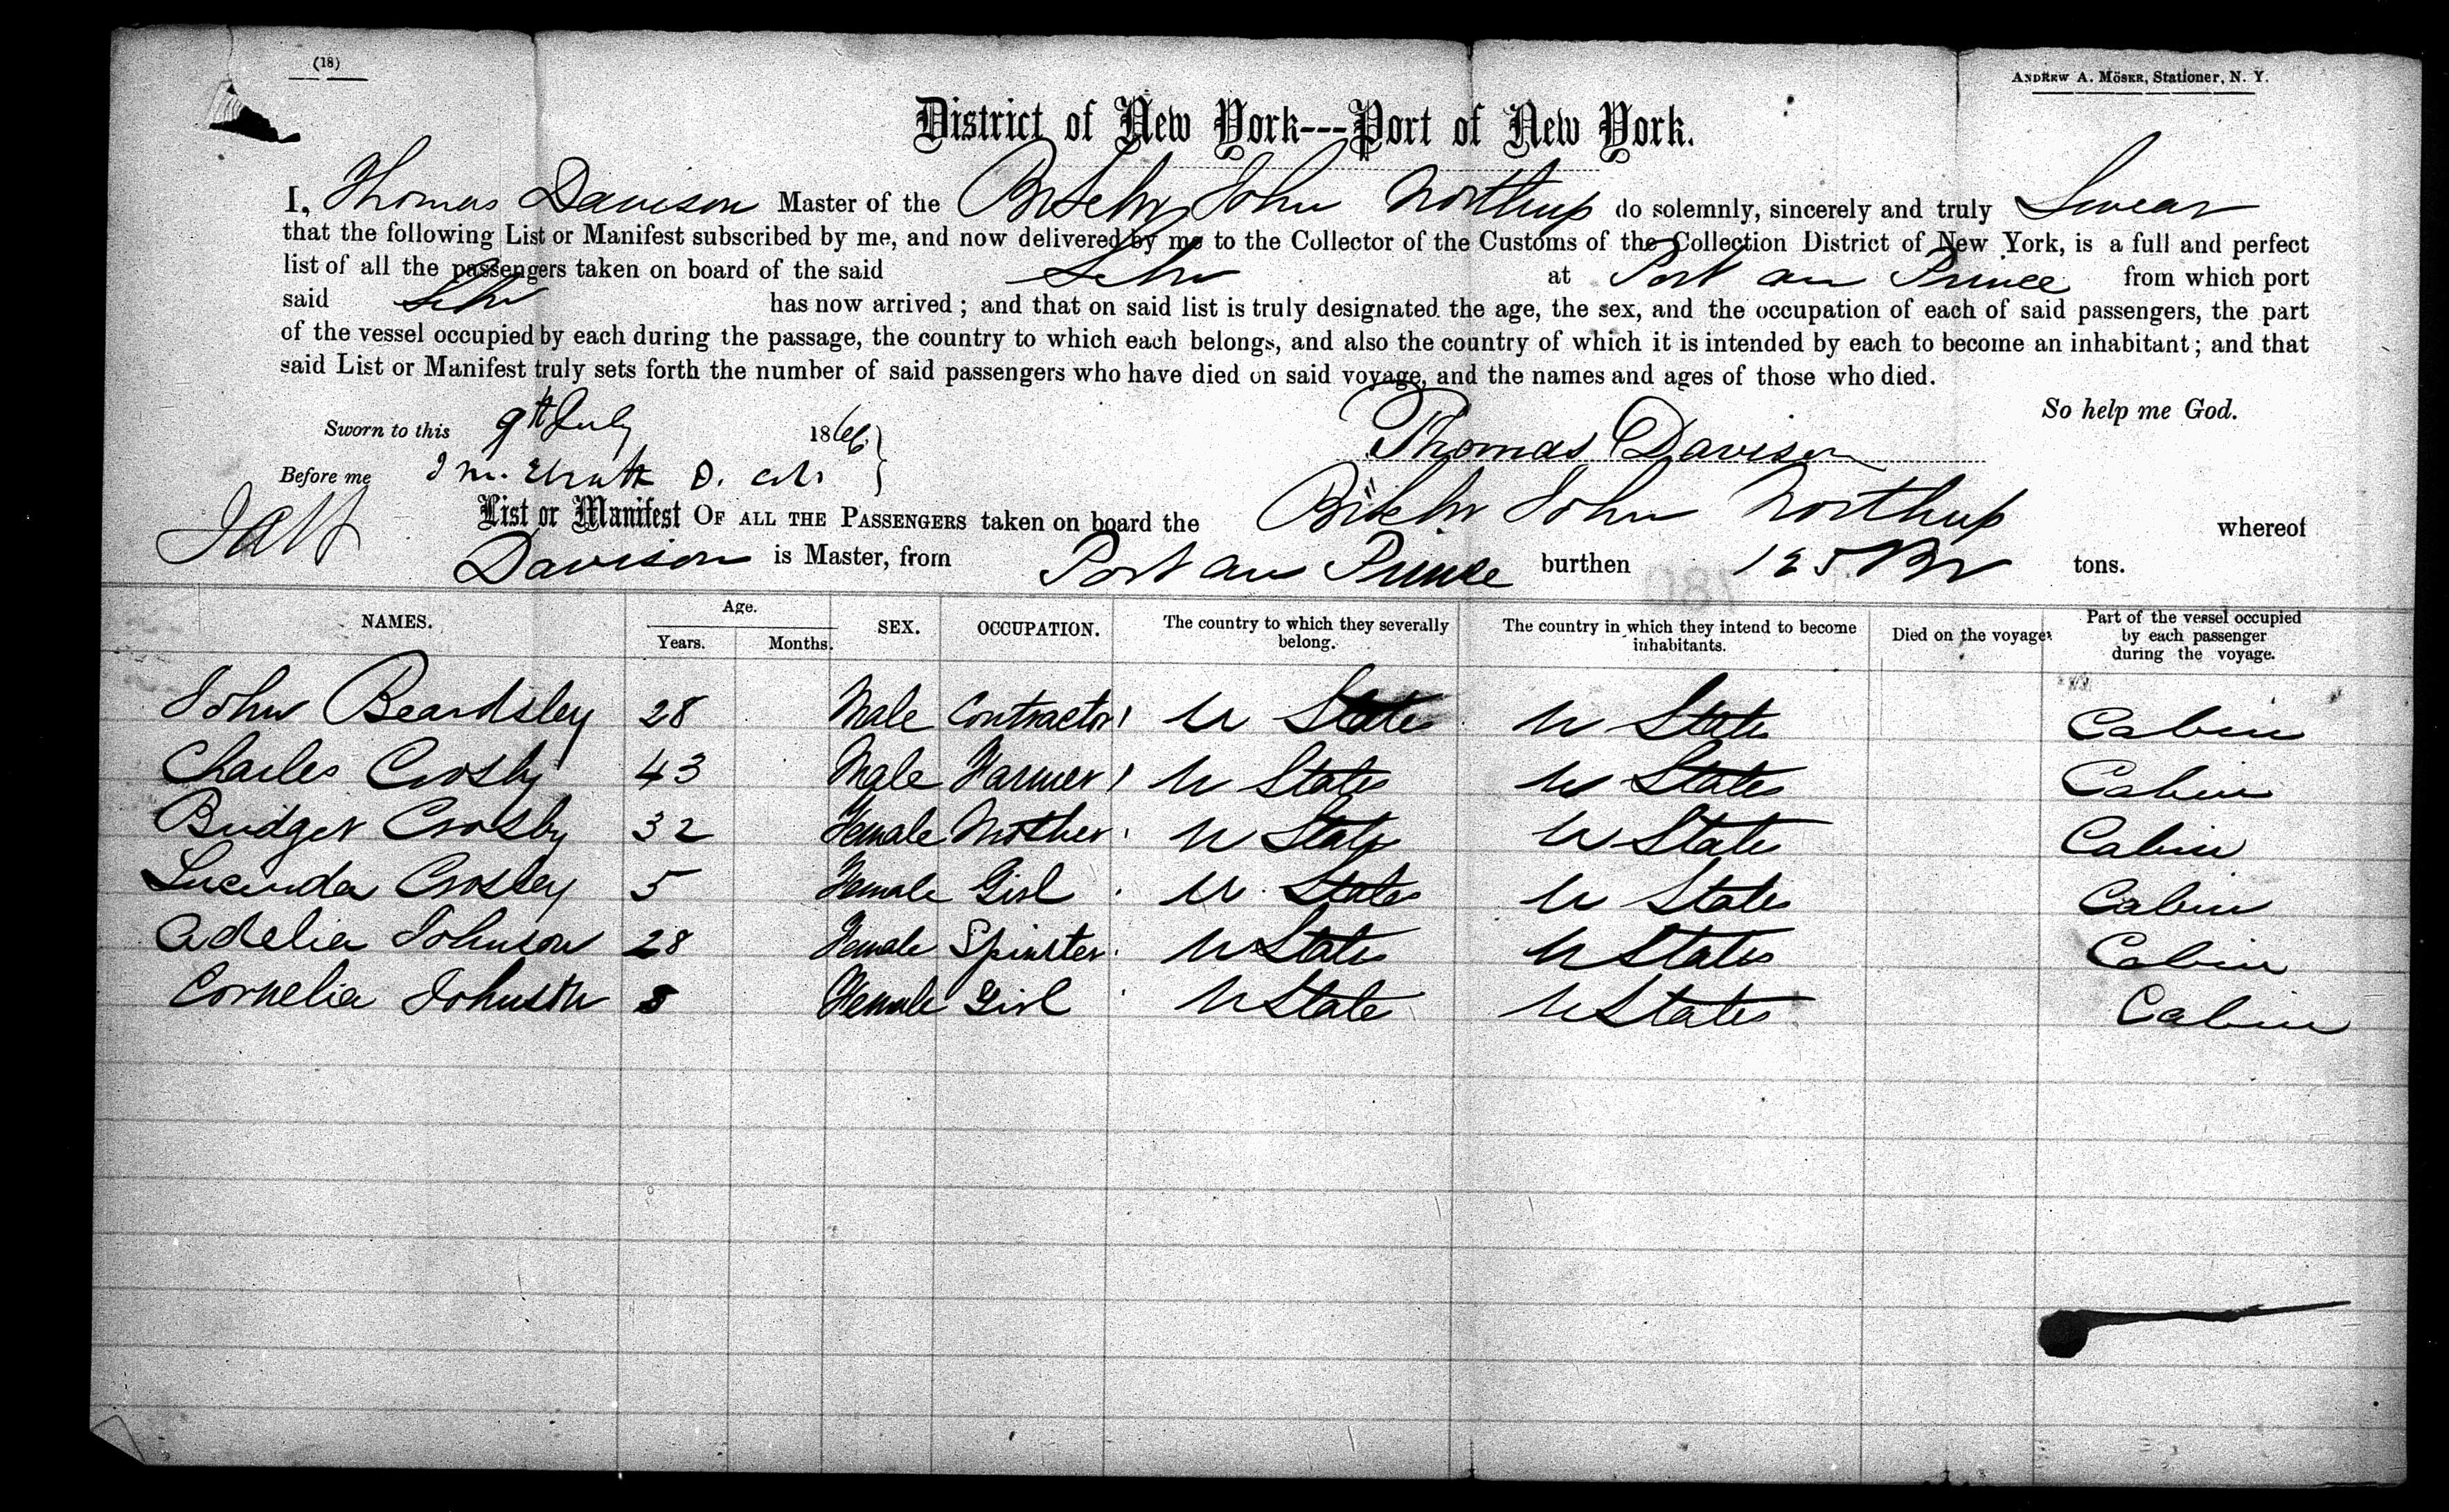 (18)
ANDREW A. MÖSER, Stationer, N. Y.
District of New York---Port of New York.
I, Thomas Davison Master of the Br Schr John Northup do solemnly, sincerely and truly Swear
that the following List or Manifest subscribed by me, and now delivered by me to the Collector of the Customs of the Collection District of New York, is a full and perfect
list of all the passengers taken on board of the said Schr at Port au Prince from which port
said Schr has now arrived ; and that on said list is truly designated the age, the sex, and the occupation of each of said passengers, the part
of the vessel occupied by each during the passage, the country to which each belongs, and also the country of which it is intended by each to become an inhabitant ; and that
said List or Manifest truly sets forth the number of said passengers who have died on said voyage, and the names and ages of those who died.
So help me God.
Sworn to this 9th July 1866
Thomas Davison
Before me
List or Manifest OF ALL THE PASSENGERS taken on board the Br Schr John Northup whereof
Davison is Master, from Port au Prince burthen 125 tons.
NAMES. Age. Years. Months. SEX. OCCUPATION. The country to which they severally belong. The country in which they intend to become inhabitants. Died on the voyage. Part of the vessel occupied by each passenger during the voyage.
John Beardsley 28 Male Contractor U States U States Cabin
Charles Crosby 43 Male Farmer U States U States Cabin
Bridget Crosby 32 Female Mother U States U States Cabin
Lucinda Crosley 5 Female Girl U States U States Cabin
Adelia Johnson 28 Female Spinster U States U States Cabin
Cornelia Johnson Female Girl U State U States Cabin